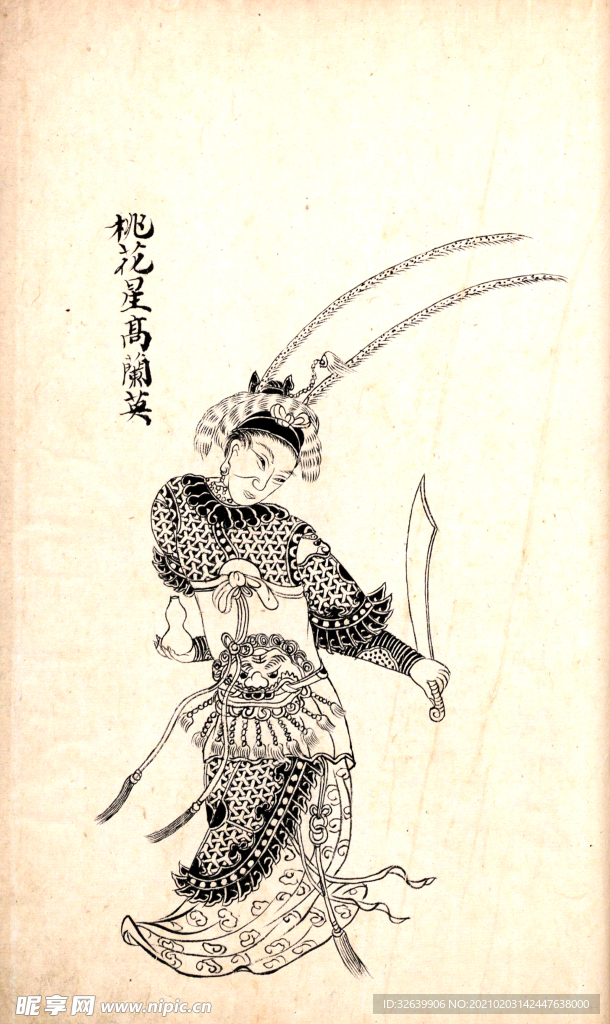 桃花星高蘭英
昵享网 www.nipic.cn
ID:32639906 NO:20210203142447638000